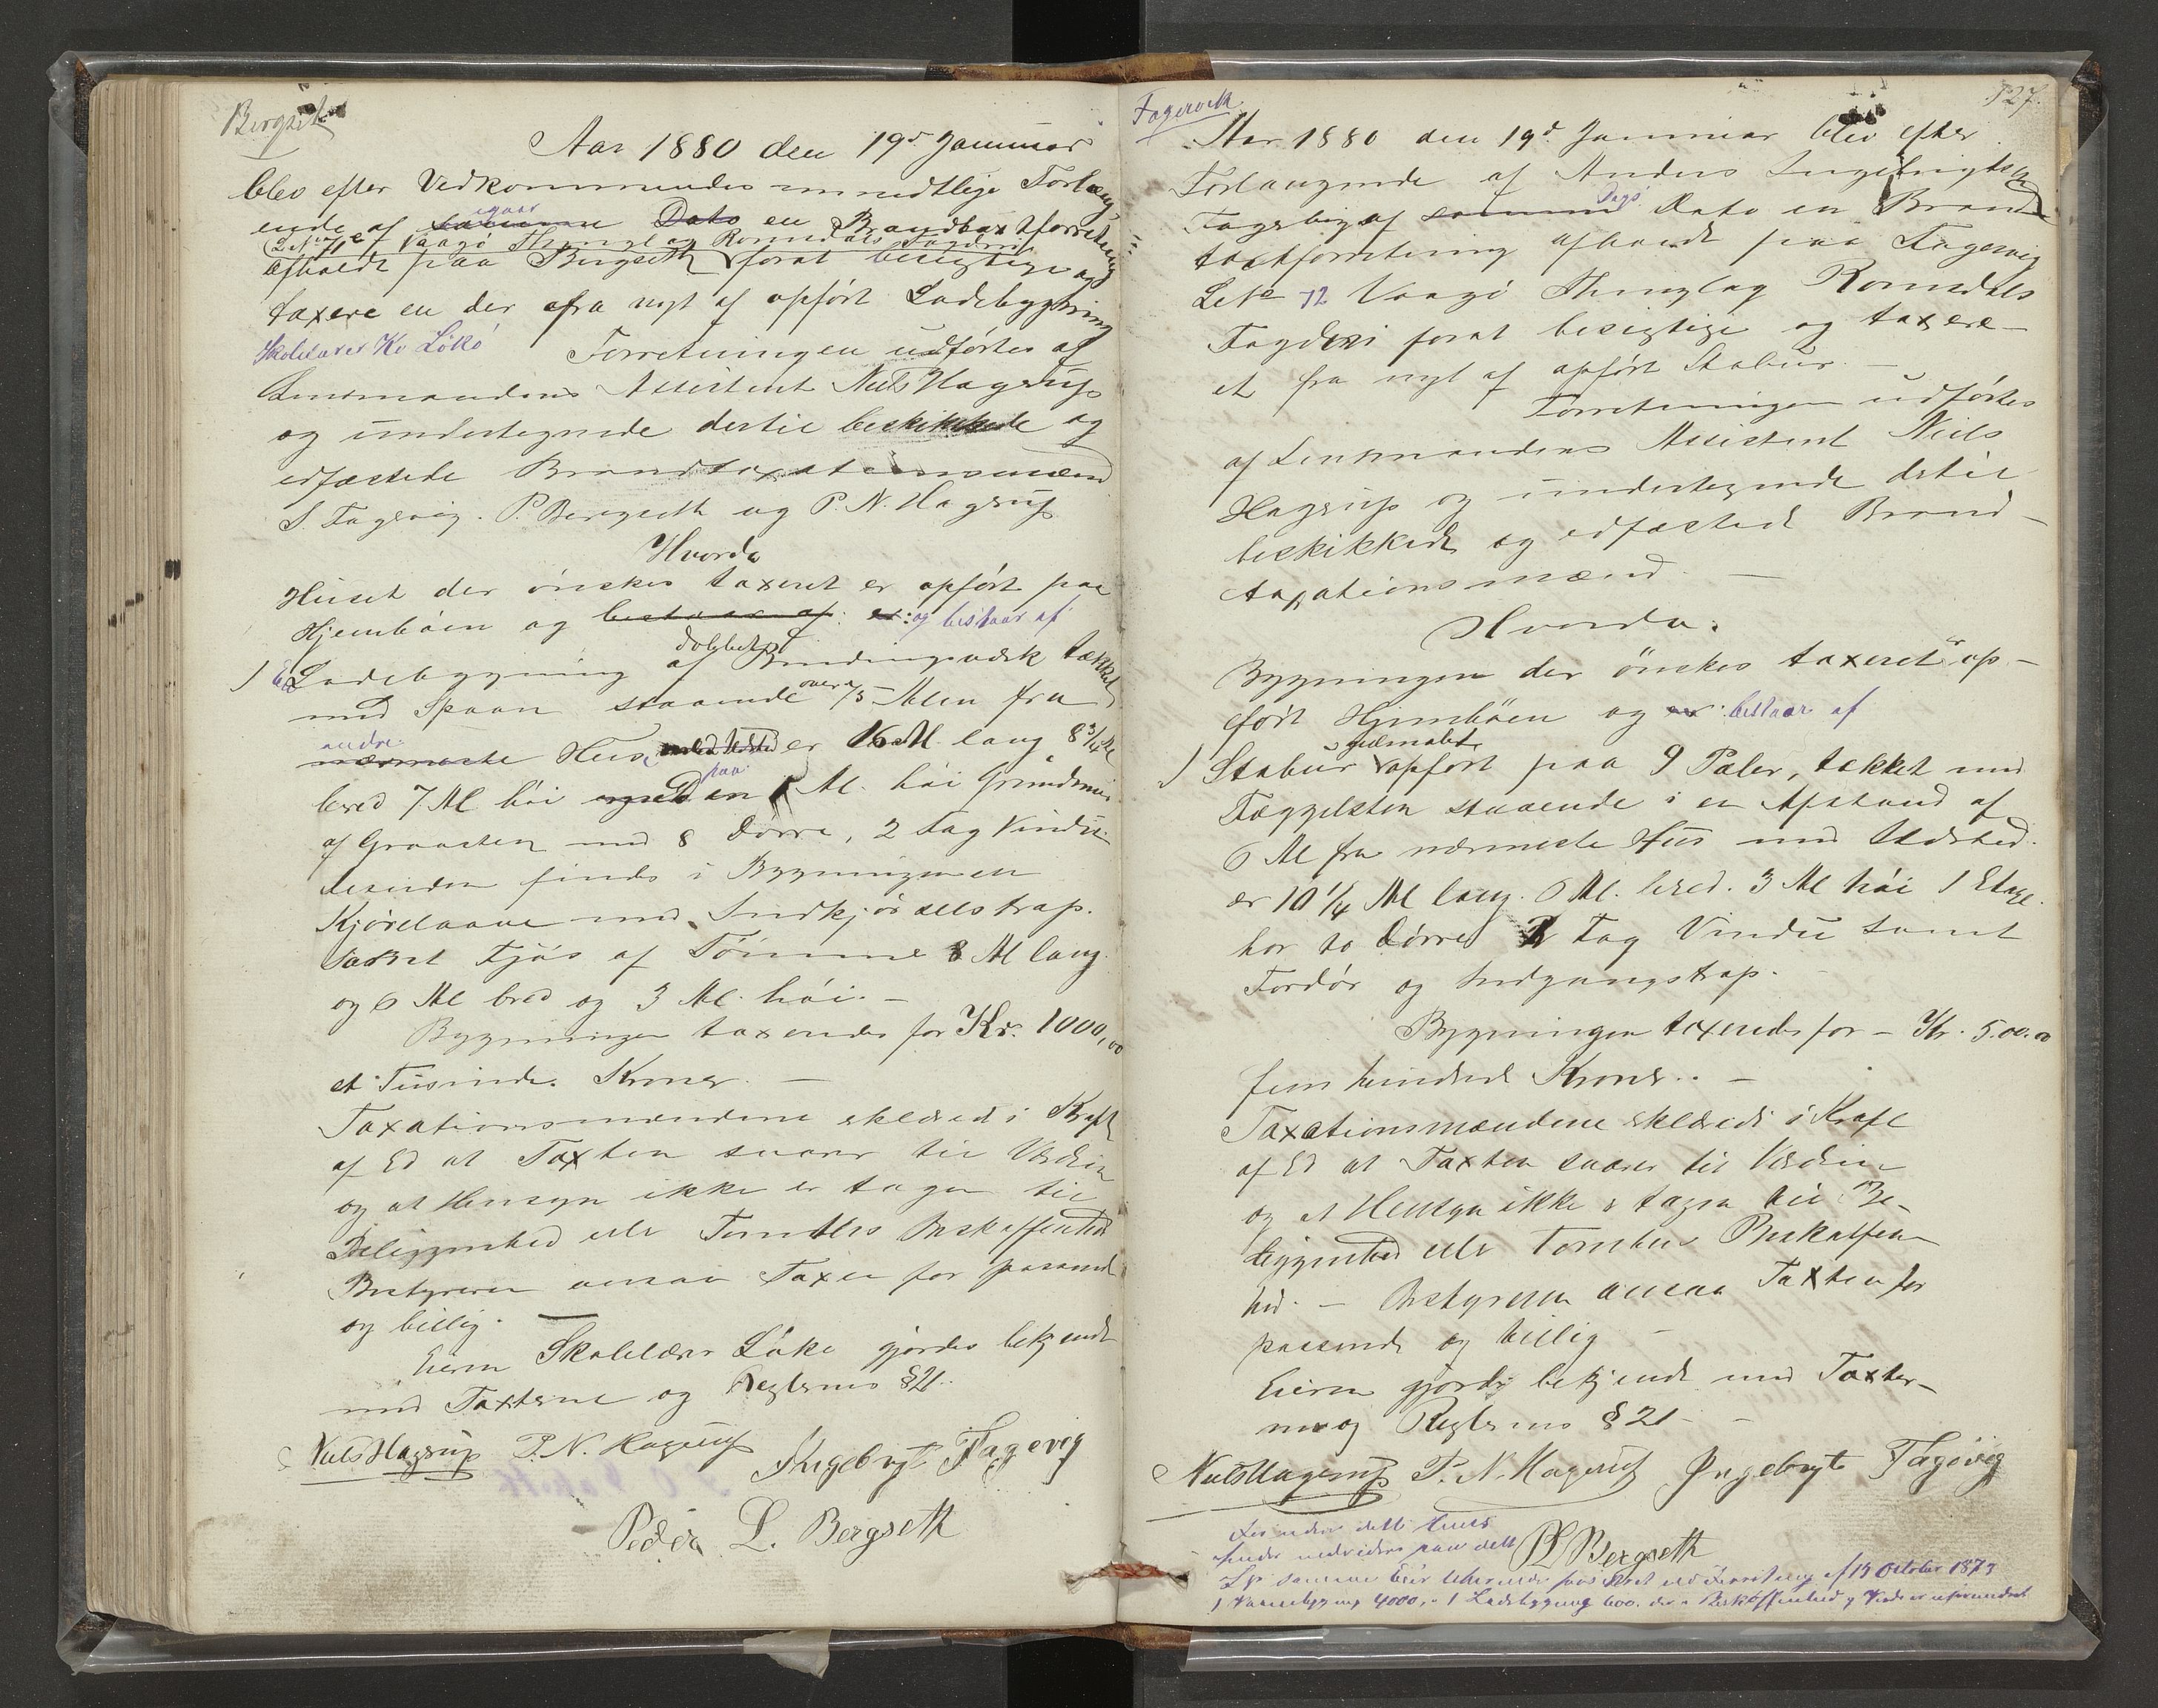 Bergset
Aar 1880 den 19de Januar
blev efter Vedkommendes mundtlige Forlang
ende af samme Dato en Brandtaxtforretning
igaar
Lnr 71 Vaagø Thinglag Romsdals Fogderi
afholdt paa Bergseth forat besigtige og
taxere en der fra nyt af opført Ladebygning
Skolelærer Løkø Forretningen udførtes af
Lensmandens Assistent Niels Hagerup
og undertegnede dertil beskikkede og
edfæstede Brandtaxationsmænd
I. Fagervig. P. Bergseth og P. N. Hagerup
Hvorda
Huset der ønskes taxeret er opført paa
Hjembøen og bestaar af: er: og bestaar af
dobbelt
1 En Ladebygning af Bindingsværk tækket
med Spaan staaende over 15 Alen fra
andre
nærmeste Hus, med Ildsted er 16 Al. lang 8 3/4 Al
bred 7 Al høi paa en 1 Al. høi Grundmur
af Graasten med 8 Dørre, 2 Fag Vindu
desuden findes i Bygningen en
Kjørelaave med Indkjørselstrap.
samt Fjøs af Tømmer 8 Al lang
og 6 Al bred og 3 Al. høi. –
Bygningen taxeredes for Kr. 1000,00
et Tusinde Kroner. –
Taxationsmændene erklærede i Kraft
af Ed at Taxten svarer til Værdien
og at Hensyn ikke er tagen til
Beliggenhed eller Tomtens Beskaffenhed
Bestyreren ansaa Taxten for passende
og billig. –
Eieren Skolelærer Løke gjordes bekjendt
med Taxterne og Reglernes § 21.
Niels Hagerup P. N. Hagerup Ingebrigt Fagervig
Peder L. Bergseth
Fagervik
127.
Aar 1880 den 19de Januar blev efter
Forlangende af Anders Ingebrigtsen
Dags
Fagervig af samme Dato en Brand
taxtforretning afholdt paa Fagervig
LNr 72 Vaagø Thinglag Romsdals
Fogderi forat besigtige og taxere
et fra nyt af opført Stabur. –
Forretningen udførtes
af Lensmandens Assistent Niels
Hagerup og undertegnede dertil
beskikkede og edfæstede Brand-
taxationsmænd. –
Hvorda.
Bygningen der ønskes taxeret er op-
ført Hjembøen og er: bestaar af
gulmalet
1 Stabur opført paa 9 Pæler, tækket med
Taggelsten staaende i en Afstand af
6 Al fra nærmeste Hus med Ildsted.
er 10 1/4 Al lang. 6 Al. bred. 3 Al høi 1 Etage.
har to Dørre 2 Fag Vindu samt
Fordør og Indgangstrap. –
Bygningen taxeredes for – Kr. 500.00
fem hundrede Kroner. –
Taxationsmændene erklærede i Kraft
af Ed at Taxten svarer til Værdien
og at Hensyn ikke er tagen til Be-
liggenhed eller Tomtens Beskaffen-
hed. – Bestyreren ansaa Taxten for
passende og billig –
Eieren gjordes bekjendt med Taxter-
ne og Reglernes § 21 –
Niels Hagerup P. N. Hagerup Ingebrigt Fagervig
PL Bergseth
Foruden dette Huus
findes paa dette
samme Eier ved Forretning af 13 October 1873
1 Vaanebygning 4000, 1 Ladebygning 600. Beskaffenhed og Værdi er uforandret